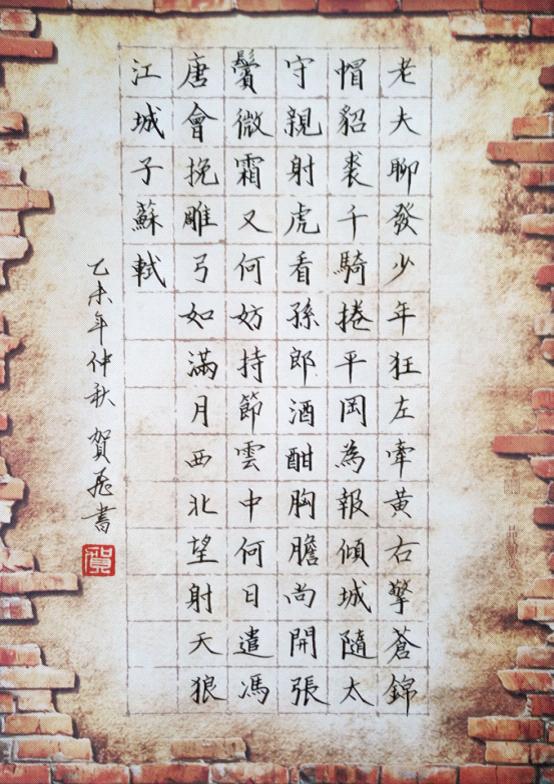 老夫聊發少年狂左牽黃右擎蒼錦
帽貂裘千騎捲平岡為報傾城隨太
守親射虎看孫郎酒酣胸膽尚開張
鬢微霜又何妨持節雲中何日遣馮
唐會挽雕弓如滿月西北望射天狼
江城子蘇軾
乙未年仲秋賀飛書
賀